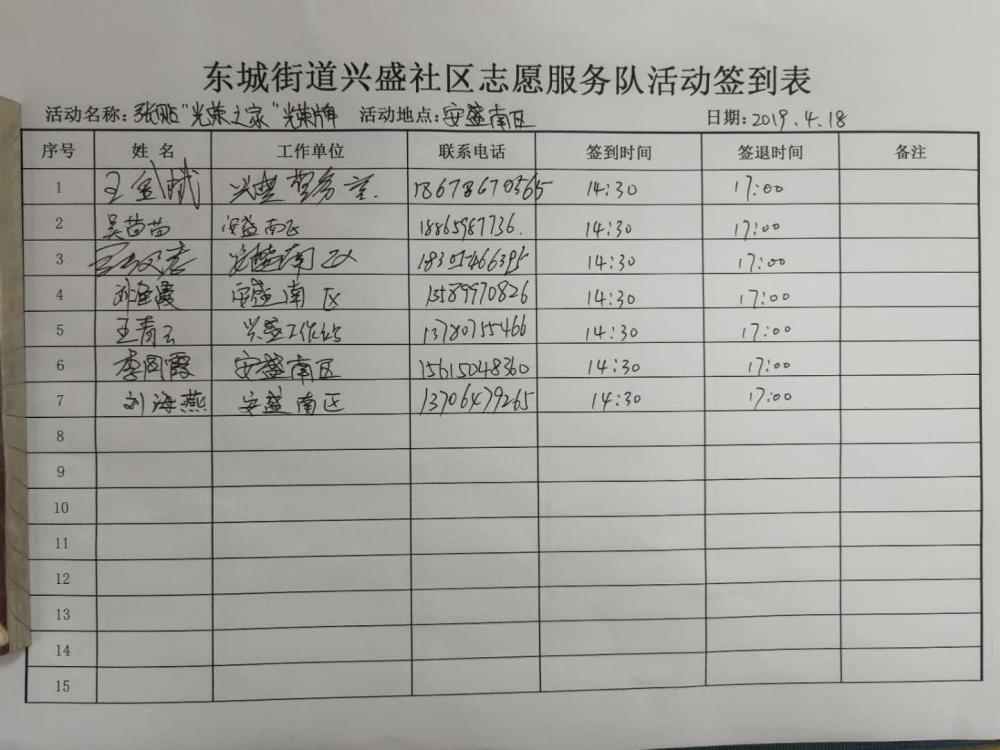 东城街道兴盛社区志愿服务队活动签到表
活动名称:张贴"光荣之家"光荣牌 活动地点:安盛南区 日期:2019.4.18
序号 姓名 工作单位 联系电话 签到时间 签退时间 备注
1 王金斌 兴盛 18678670365 14:30 17:00
2 吴苗苗 安盛南区 18865987736. 14:30 17:00
3 安盛南区 14:30 17:00
4 刘 霞 安盛南区 13589970826 14:30 17:00
5 王青云 兴盛工作站 13780755466 14:30 17:00
6 李 霞 安盛南区 15615048360 14:30 17:00
7 刘海燕 安盛南区 13706479265 14:30 17:00
8
9
10
11
12
13
14
15